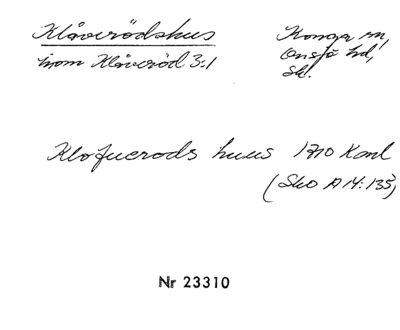 Klåverödshus
inom Klåveröd 3:1
Konga sn,
Onsjö hd,
Sk.
Klofuerods huus 1710 Kanl
(SkO A 14:135)
Nr 23310